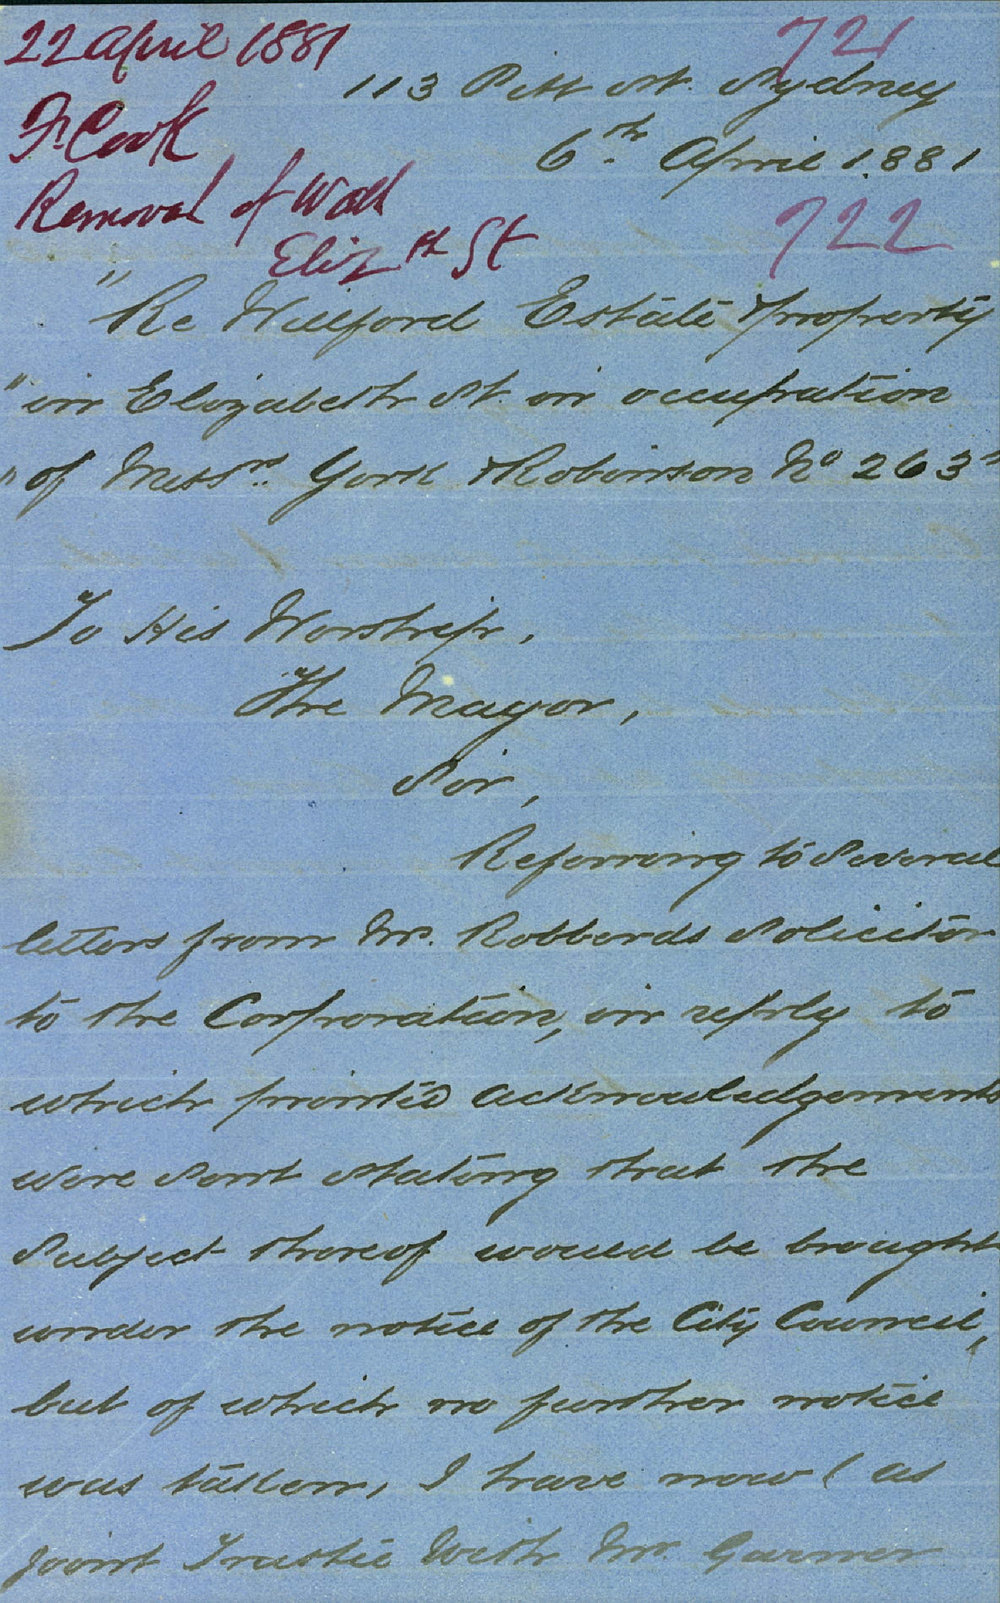 22 April 1881
721
113 Pitt St. Sydney
Fr. Cook
6.th April 1.881
Removal of Wall
722
Eliz th St
"Re Wilford Estate property
"in Elizabeth St. in occupation
"of Messrs. York & Robinson No 263"
To His Worship,
The Mayor,
Sir,
Referring to Several
letters from Mr. Robberds Solicitor
to the Corporation, in reply to
which printed acknowledgements
were sent stating that the
Subject thereof would be brought
under the notice of the City Council,
but of which no further notice
was taken, I have now (as
joint Trustee with Mr. Garner